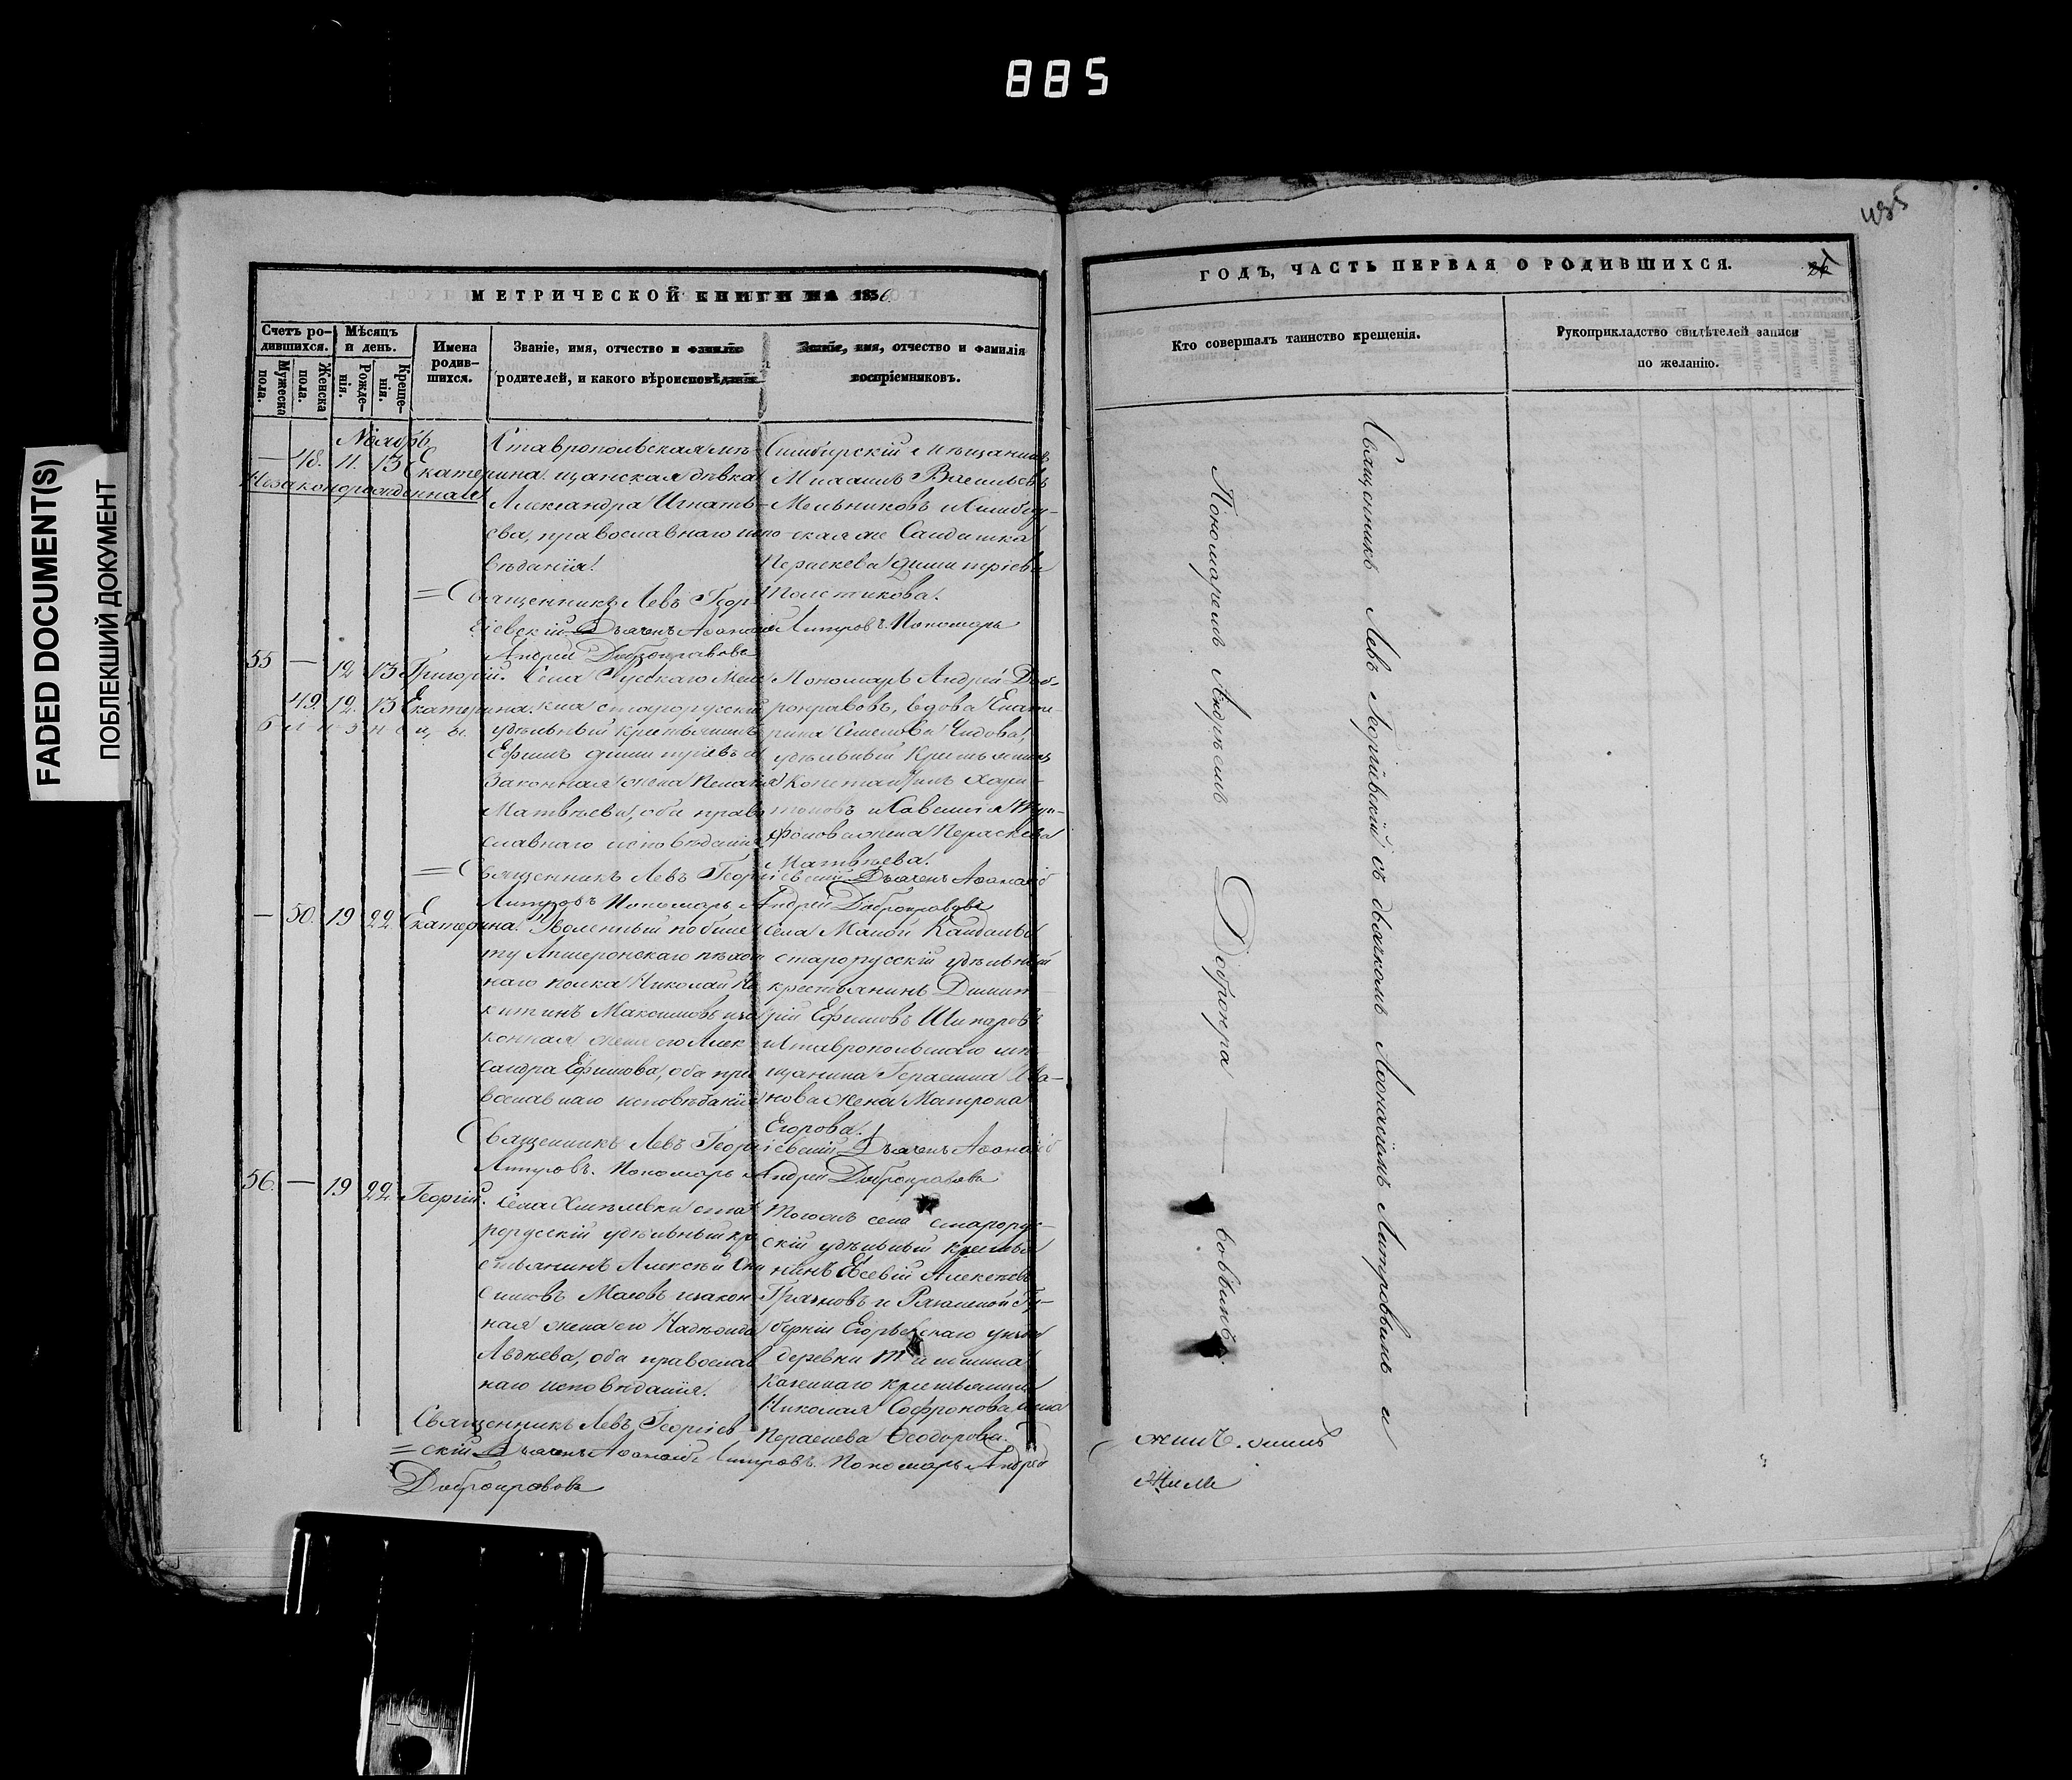 885
FADED DOCUMENT(S)
ПОБЛЕКШИЙ ДОКУМЕНТ
МЕТРИЧЕСКОЙ КНИГИ НА 1856
Счетъ ро-дившихся.
Мужеска пола.
Женска пола.
Мѣсяцъ и день.
Рожде-нія.
Креще-нія.
Имена родив-шихся.
Званіе, имя, отчество и фамилія
родителей, и какого вѣроисповѣданія.
Званіе, имя, отчество и фамилія
воспріемниковъ.
Ноябрь
— 48. 11. 13 Екатерина.
Незаконорожденная
Ставропольская мѣ-
щанская дѣвка
Александра Игнать-
ева, православнаго испо-
вѣданія.
Симбирскій мѣщанинъ
Михаилъ Васильевъ
Мельниковъ и Симбир-
ская же Салдатка
Параскева Димитріева
Толстикова.
= Священникъ Левъ Геор-
гіевскій Дьячекъ Афанасій Литровъ. Пономарь
Андрей Добронравовъ
55 — 12 13 Григорій.
49. 12. 13 Екатерина.
близнецы.
Села Русскаго Мел-
кина старорусскій
удѣльный крестьянинъ
Ефимъ Димитріевъ и
Законная жена Пелагія
Матвѣева, оба право-
славнаго исповѣданія
Пономарь Андрей Доб-
ронравовъ, вдова Екате-
рина Семенова Чидова,
удѣльный Крестьянинъ
Константинъ Хари-
тоновъ и Савелія Три-
фонова жена Параскева
Матвѣева.
= Священникъ Левъ Георгіевскій Дьячекъ Афанасій
Литровъ Пономарь Андрей Добронравовъ
— 50. 19 22. Екатерина.
Уволенный по биле-
ту Апшеронскаго пѣхот-
наго полка Николай Ни-
китинъ Максимовъ и за-
конная жена его Алек-
сандра Ефимова, оба пра-
вославнаго исповѣданія
Села Малой Кандалы
старорусскій удѣльный
крестьянинъ Димит-
рій Ефимовъ Шитаровъ
и Ставропольскаго мѣ-
щанина Герасима Ива-
нова жена Матрона
Егорова.
Священникъ Левъ Георгіевскій Дьячекъ Афанасій
Литровъ. Пономарь Андрей Добронравовъ
56. — 19 22. Георгій.
Села Хмѣлевки ста-
рорусскій удѣльный кре-
стьянинъ Алексѣй Они-
симовъ Маловъ и закон-
ная жена его Надежда
Авдѣева, оба православ-
наго исповѣданія.
Тогожъ села старорус-
скій удѣльный крестья-
нинъ Евсевій Алексѣевъ
Грязновъ и Рязанской Гу-
берніи Егорьевскаго уѣзда
деревни
казеннаго крестьянина
Николая Софронова жена
Параскева Ѳеодорова.
Священникъ Левъ Георгіев-
=скій Дьячекъ Афанасій Литровъ. Пономарь Андрей
Добронравовъ
435
ГОДЪ, ЧАСТЬ ПЕРВАЯ О РОДИВШИХСЯ.
Кто совершалъ таинство крещенія.
Рукоприкладство свидѣтелей записи
по желанію.
Священникъ Левъ Георгіевскій съ дьячкомъ Афонасіемъ Литровымъ и
Пономаремъ Андреемъ Добронра — вовымъ.